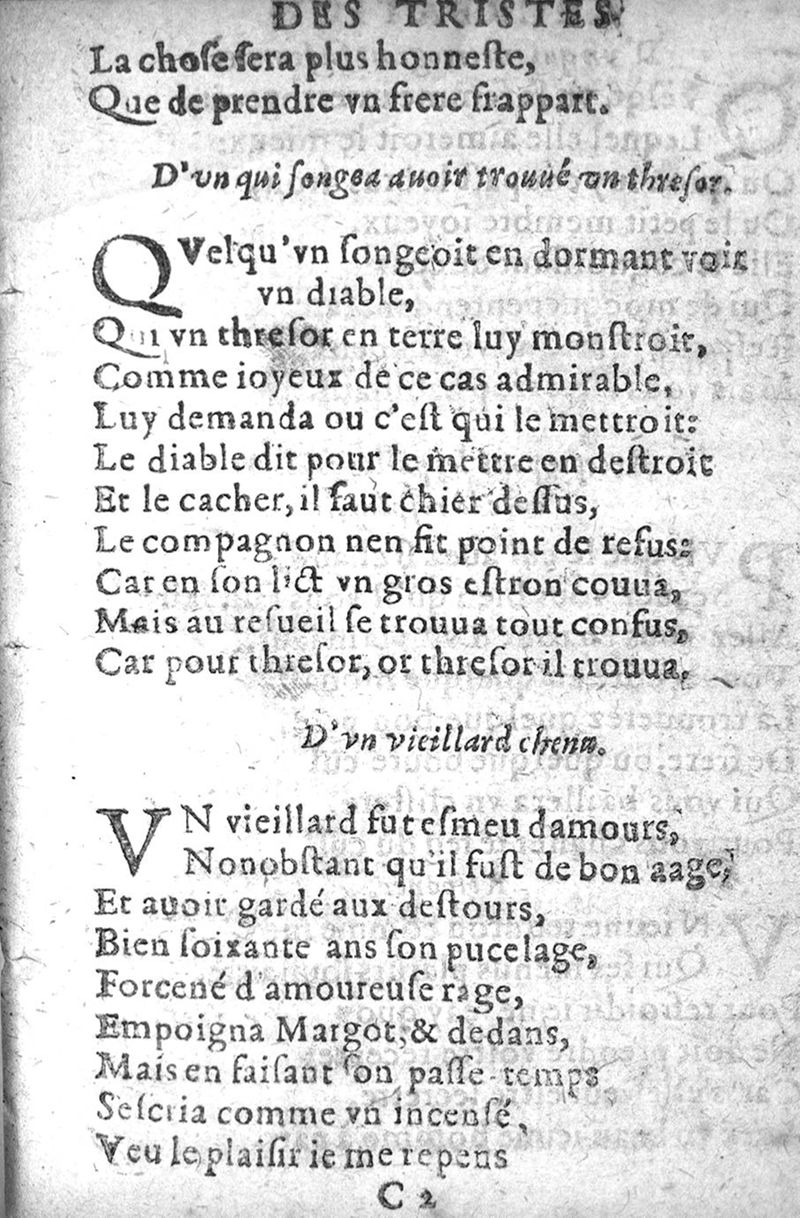 DES TRISTES.
La choſe ſera plus honneſte,
Que de prendre vn frere frappart.
D'vn qui ſongea auoir trouué vn threſor.
QVelqu'vn ſongeoit en dormant voir
vn diable,
Qui vn threſor en terre luy monſtroit,
Comme ioyeux de ce cas admirable,
Luy demanda ou c'eſt qui le mettroit:
Le diable dit pour le mettre en deſtroit
Et le cacher, il faut chier deſſus,
Le compagnon nen fit point de refus:
Car en ſon lict vn gros eſtron couua,
Mais au reſueil ſe trouua tout confus,
Car pour threſor, or threſor il trouua,
D'vn vieillard chenu.
VN vieillard fut eſmeu damours,
Nonobſtant qu'il fuſt de bon aage,
Et auoir gardé aux deſtours,
Bien ſoixante ans ſon pucelage,
Forcené d'amoureuſe rage,
Empoigna Margot, & dedans,
Mais en faiſant ſon paſſe-temps
Seſcria comme vn incenſé,
Veu le plaiſir ie me repens
C 2